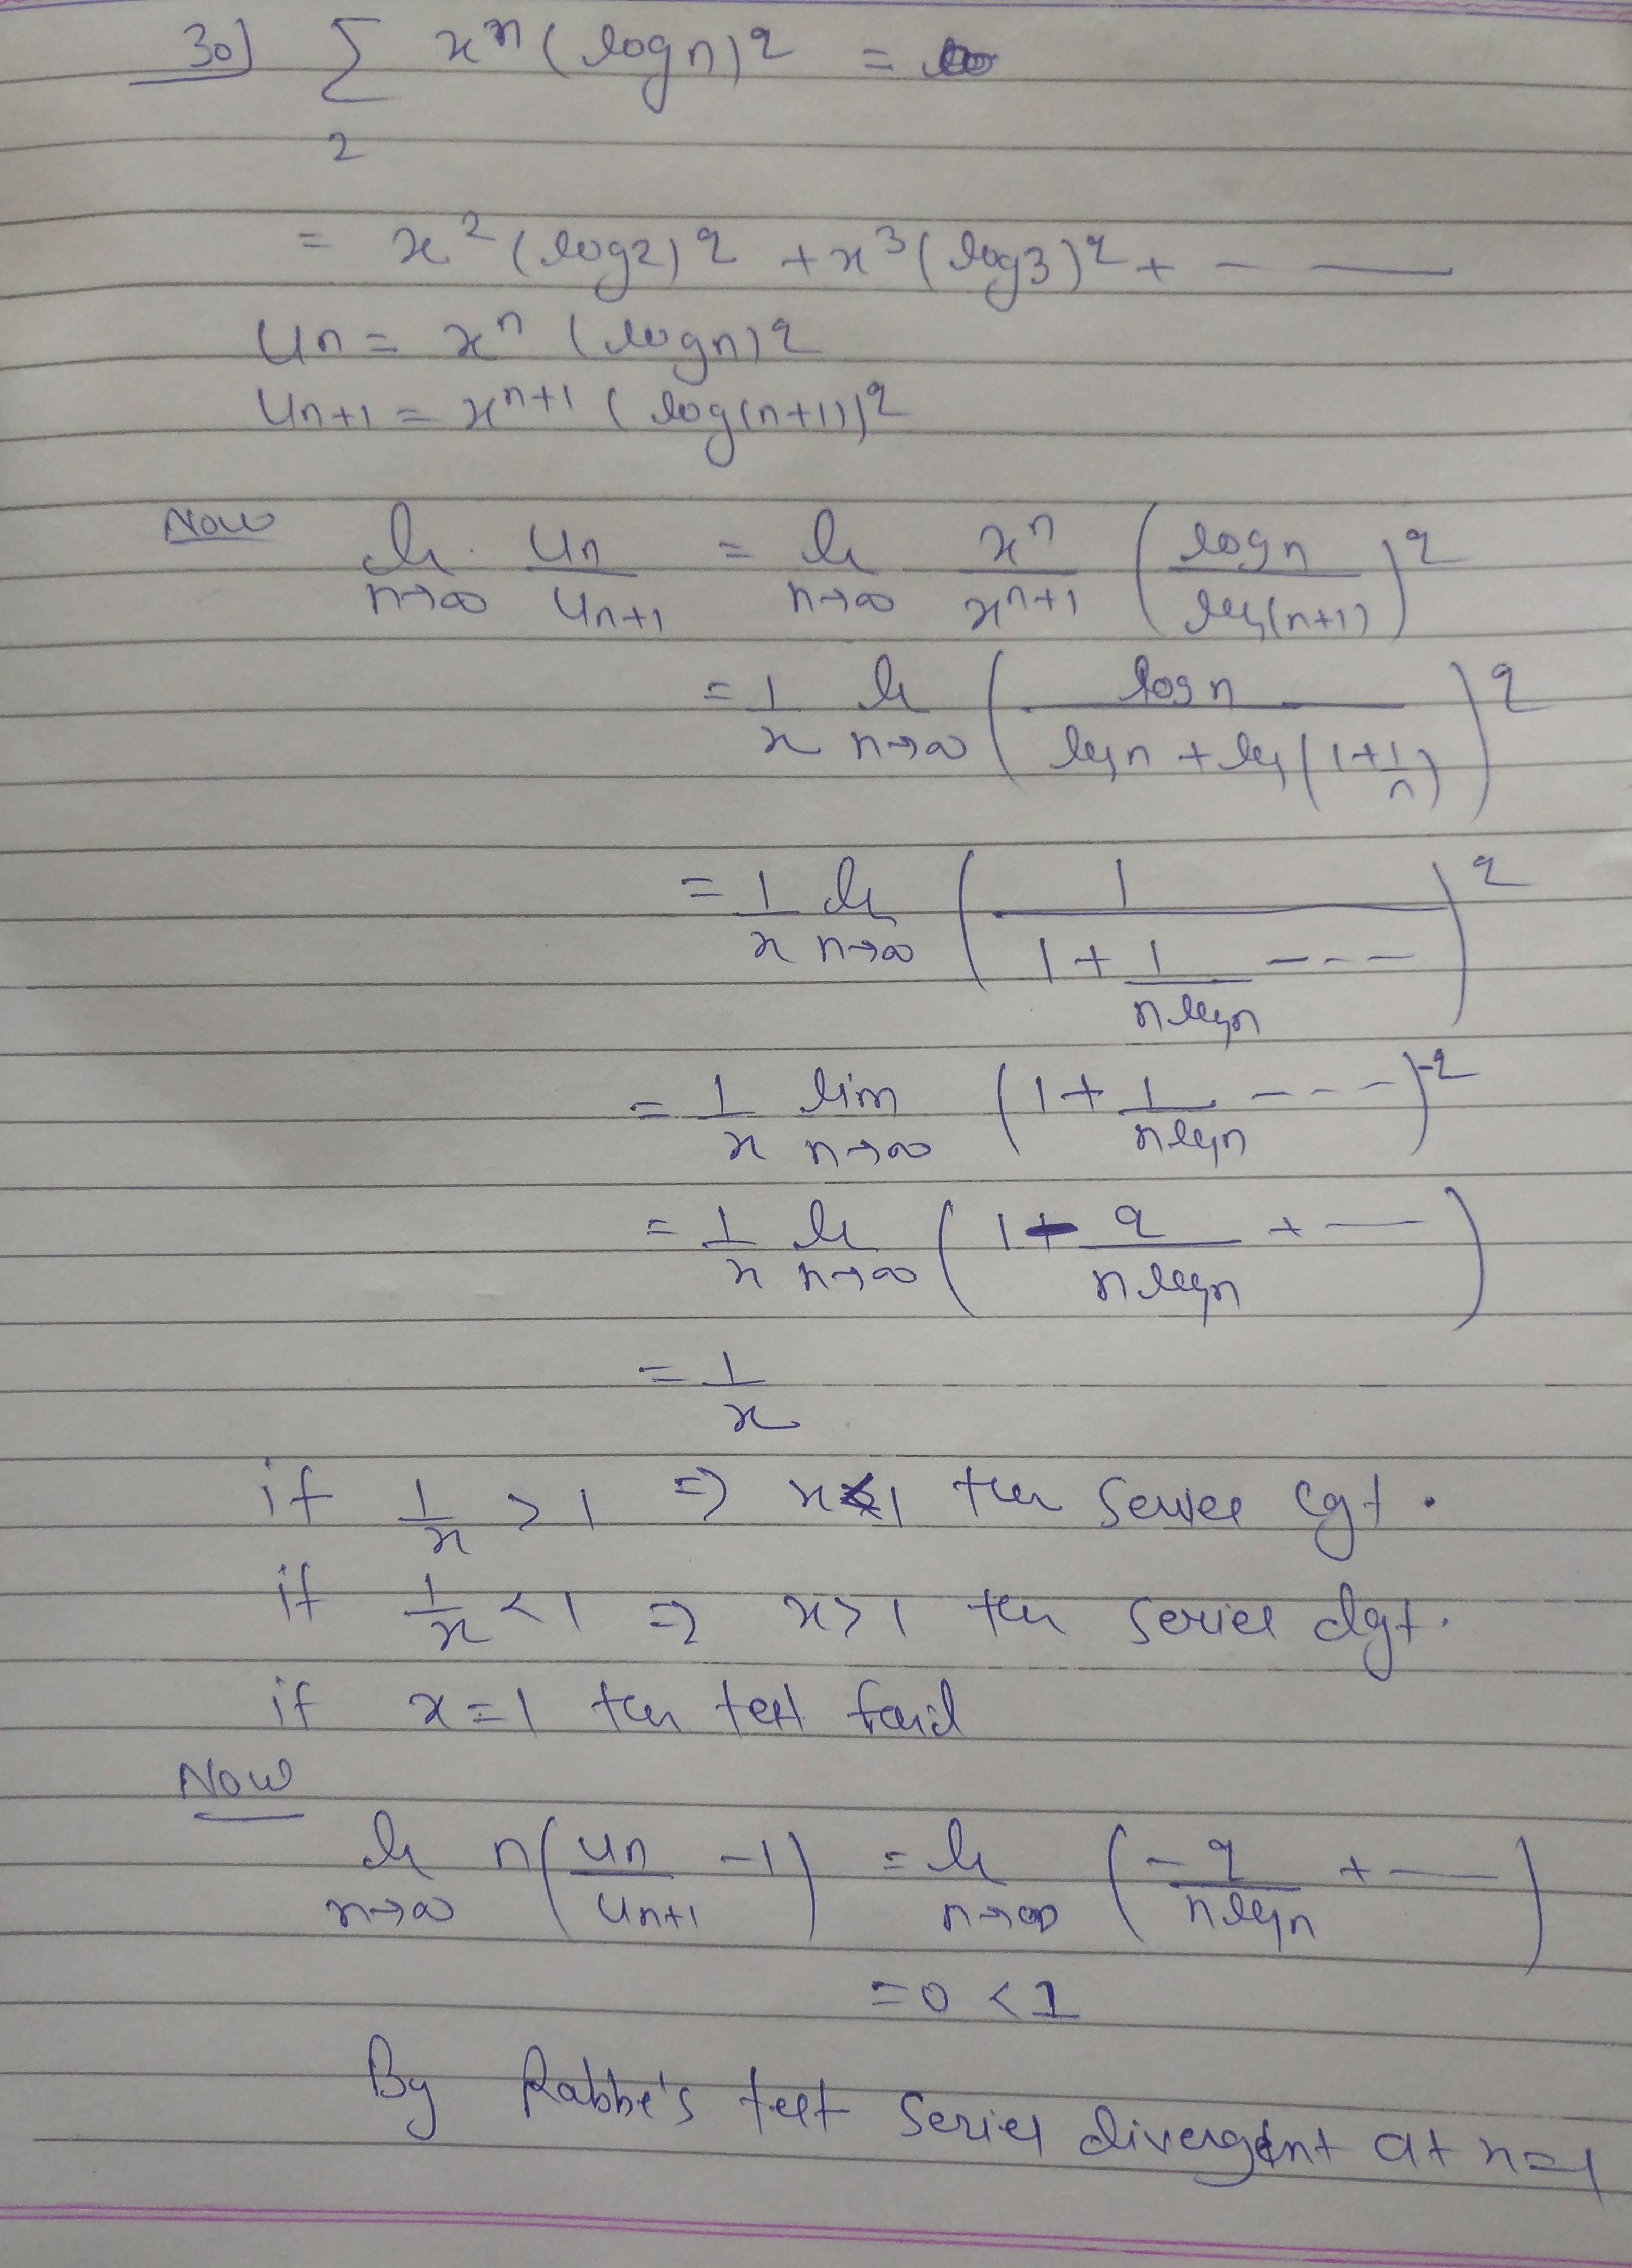 30) ∑ xⁿ (log n)^q =
2
= x² (log2)^q + x³ (log3)^q + - —
Un = xⁿ (log n)^q
Un+1 = xⁿ⁺¹ (log(n+1))^q
Now lt n→∞ Un/Un+1 = lt n→∞ xⁿ/xⁿ⁺¹ (log n/log(n+1))^q
= 1/x lt n→∞ (log n/(log n + log(1+1/n)))^q
= 1/x lt n→∞ (1/(1 + 1/(n log n) ---))^q
= 1/x lim n→∞ (1 + 1/(n log n) ----)^-q
= 1/x lt n→∞ (1 - q/(n log n) + —)
= 1/x
if 1/x > 1 ⇒ x < 1 the series cgt.
if 1/x < 1 ⇒ x > 1 the series dgt.
if x = 1 the test fail
Now
lt n→∞ n(Un/Un+1 - 1) = lt n→∞ (-q/(n log n) + —)
= 0 < 1
By Rabbe's test series divergent at x=1